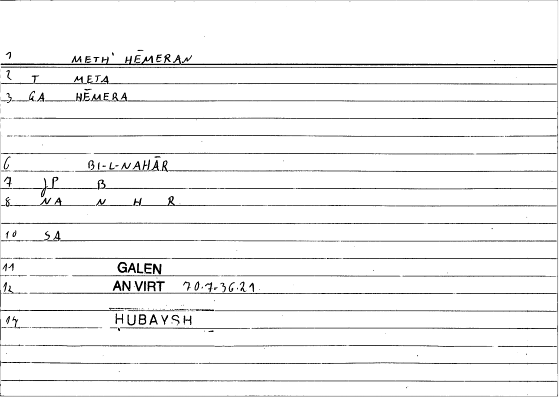 1 METH' HĒMERAN
2 T META
3 GA HĒMERA
6 BI-L-NAHĀR
7 JP B
8 NA N H R
10 SA
11 GALEN
12 AN VIRT 70.7-36.21
14 HUBAYSH